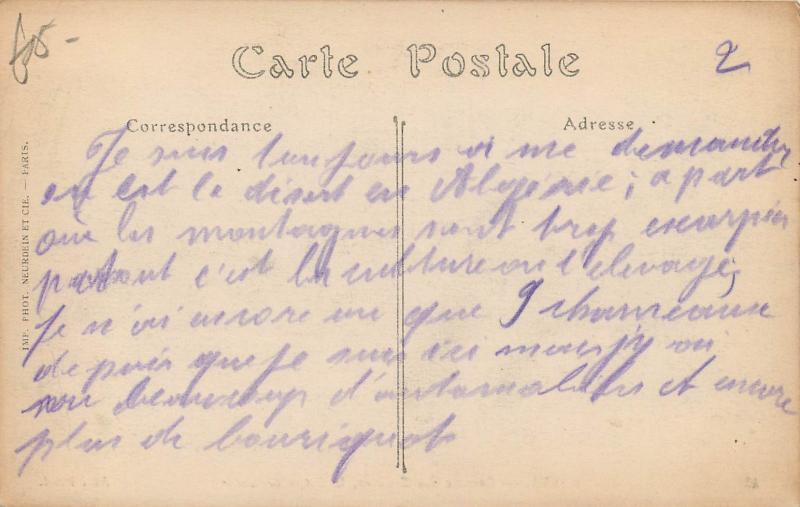 2
Carte Postale
Correspondance
Adresse
Je suis toujours a me demander
ou est le désert en Algérie ; a part
où les montagnes sont trop escarpées
partout c'est la culture ou l'elevage ;
Je n'ai encore vu que 9 chameaux
depuis que je suis ici mais j'y ai
vu beaucoup d'automobiles et encore
plus de bouriquots
IMP. PHOT. NEURDEIN ET CIE. — PARIS.